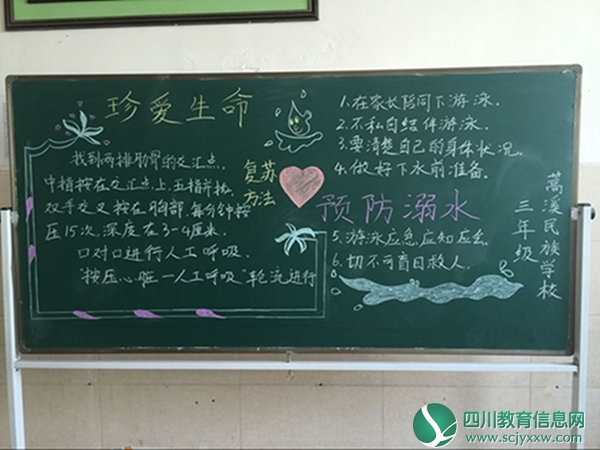 珍爱生命
找到两排肋骨的交汇点.
中指按在交汇点上,五指并拢
双手交叉按在胸部.每分钟按
压15次,深度在3-4厘米.
口对口进行人工呼吸.
"按压心脏一人工呼吸"轮流进行
复苏
方法
1.在家长陪同下游泳.
2.不私自结伴游泳.
3.要清楚自己的身体状况.
4.做好下水前准备.
预防溺水
5.游泳应急应知应会.
6.切不可盲目救人.
蒿溪民族学校
三年级
四川教育信息网
www.scjyxxw.com